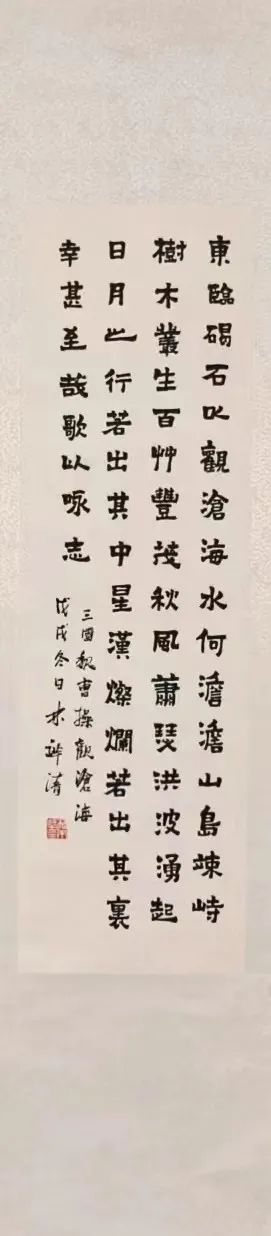 東臨碣石以觀滄海水何澹澹山島竦峙
樹木叢生百艸豐茂秋風蕭瑟洪波湧起
日月之行若出其中星漢燦爛若出其裏
幸甚至哉歌以咏志
三國魏曹操觀滄海
戊戌冬日